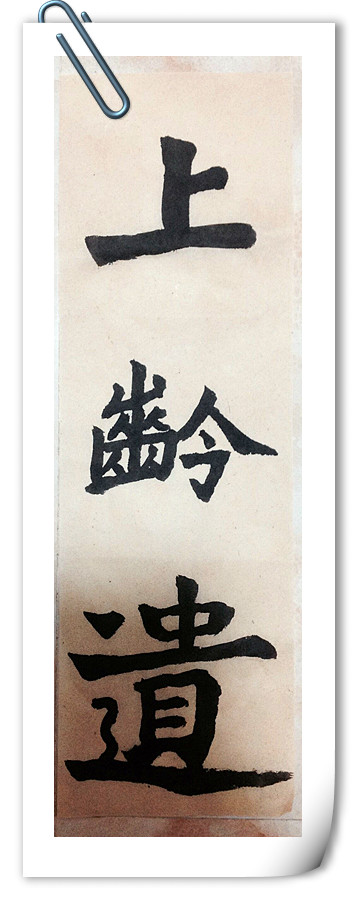 上齡遺